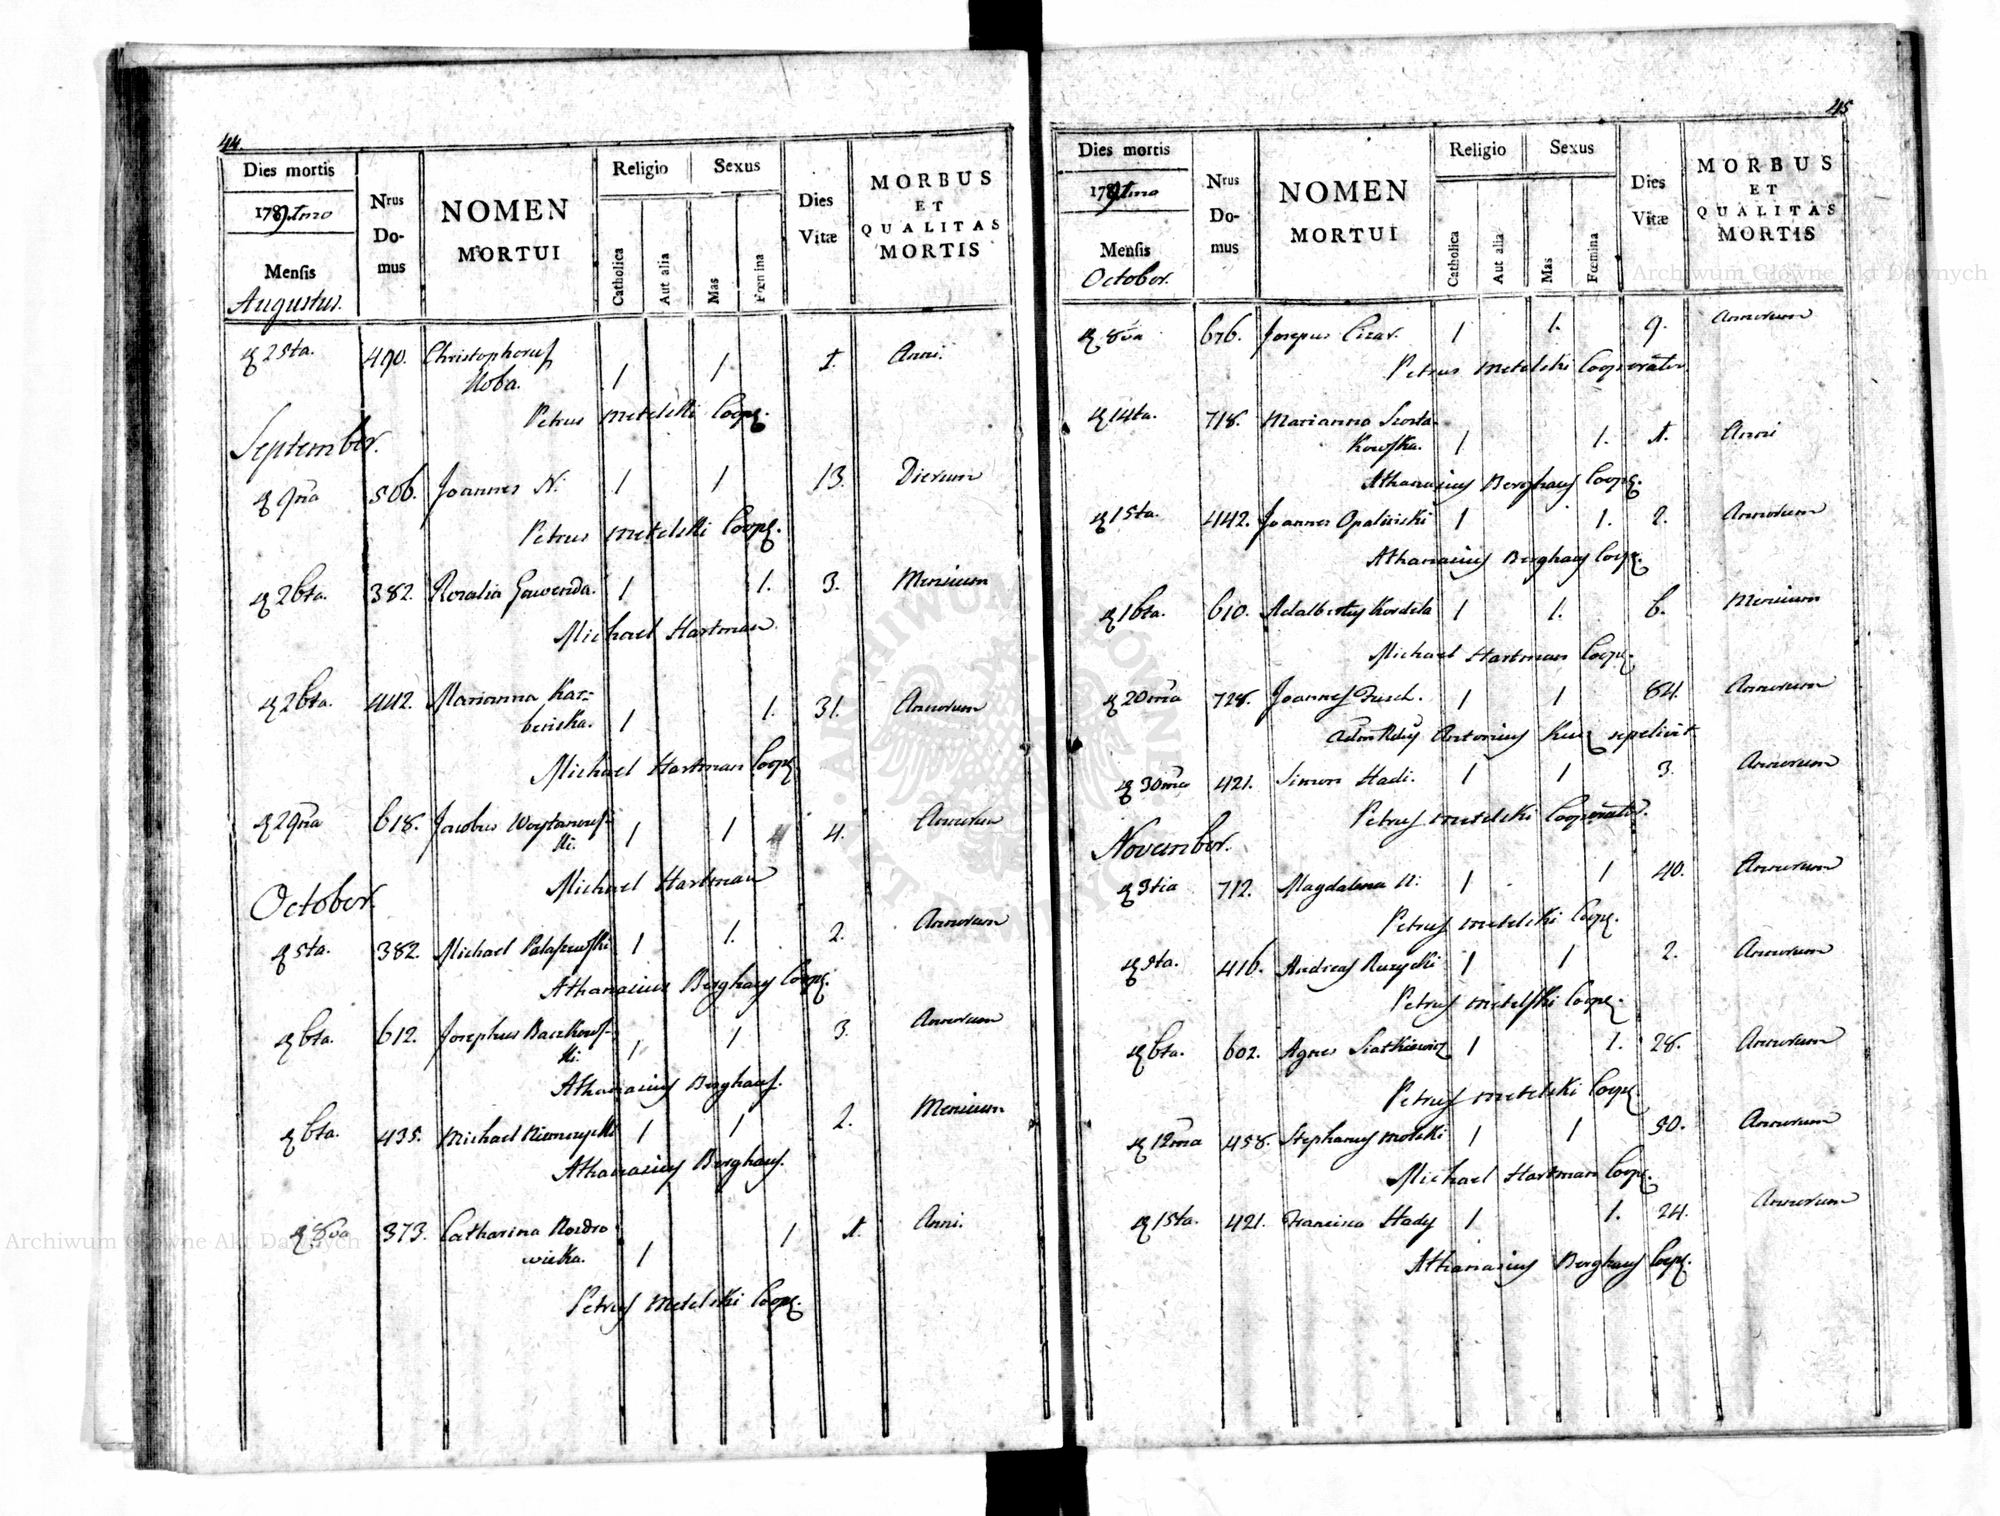 44.
Dies mortis
1789no
Mensis
Augustus.
Nrus Domus
NOMEN
MORTUI
Religio
Sexus
Catholica
Aut alia
Mas
Fœmina
Dies Vitæ
MORBUS
ET
QUALITAS
MORTIS
25ta. 490. Christophorus 1 1 1. Anni.
Petrus Metelski Coop.
September.
9na 506. Joannes N: 1 1 13. Dierum
Petrus Metelski Coop.
26ta. 382. Rosalia Gawenda. 1 1. 3. Mensium
Michael Hartman
26ta. 442. Marianna Kar=
beriska. 1 1. 31. Annorum
Michael Hartman Coop.
29na 618. Jacobus Woytanows
ki. 1 1 4. Annorum
Michael Hartman
October.
5ta. 382. Michael Palaszewski 1 1. 2. Annorum
Athanasius Berghaus Coop.
6ta. 612. Josephus Baczkows-
ki. 1 1 3. Annorum
Athanasius Berghaus.
6ta. 435. Michael Niemczycki 1 1 2. Mensium
Athanasius Berghaus.
8va 373. Catharina
wicka. 1 1 1. Anni.
Petrus Metelski Coop.
45
Dies mortis
1789no
Mensis
October.
Nrus Domus
NOMEN
MORTUI
Religio
Sexus
Catholica
Aut alia
Mas
Fœmina
Dies Vitæ
MORBUS
ET
QUALITAS
MORTIS
8va 676. Josepus Cizar. 1 1. 9. Annorum
Petrus Metelski Cooperator
14ta. 718. Marianna Szosta
kowska. 1 1. 1. Anni
Athanasius Berghaus Coop.
15ta. 442. Joannes Opalinski 1 1. 2. Annorum
Athanasius Berghaus Coop.
16ta. 610. Adalbertus Kordela 1 1. 6. Mensium
Michael Hartman Coop.
20ma 728. Joannes Frisch. 1 1 84. Annorum
Antonius sepelivit
30ma 421. Simon Hadi. 1 1 3. Annorum
Petrus Metelski Cooperator.
November.
3tia 712. Magdalena N: 1 1 40. Annorum
Petrus Metelski Coop.
5ta. 416. Andreas Ruzycki 1 1 2. Annorum
Petrus Metelski Coop.
6ta. 602. Agnes Siatkiewicz 1 1. 28. Annorum
Petrus Metelski Coop.
12ma 458. Stephanus Molski 1 1 50. Annorum
Michael Hartman Coop.
15ta. 421. Francisca Hady 1 1. 24. Annorum
Athanasius Berghaus Coop.
Archiwum Główne Akt Dawnych
Archiwum Główne Akt Dawnych
ARCHIWUM GŁÓWNE AKT DAWNYCH